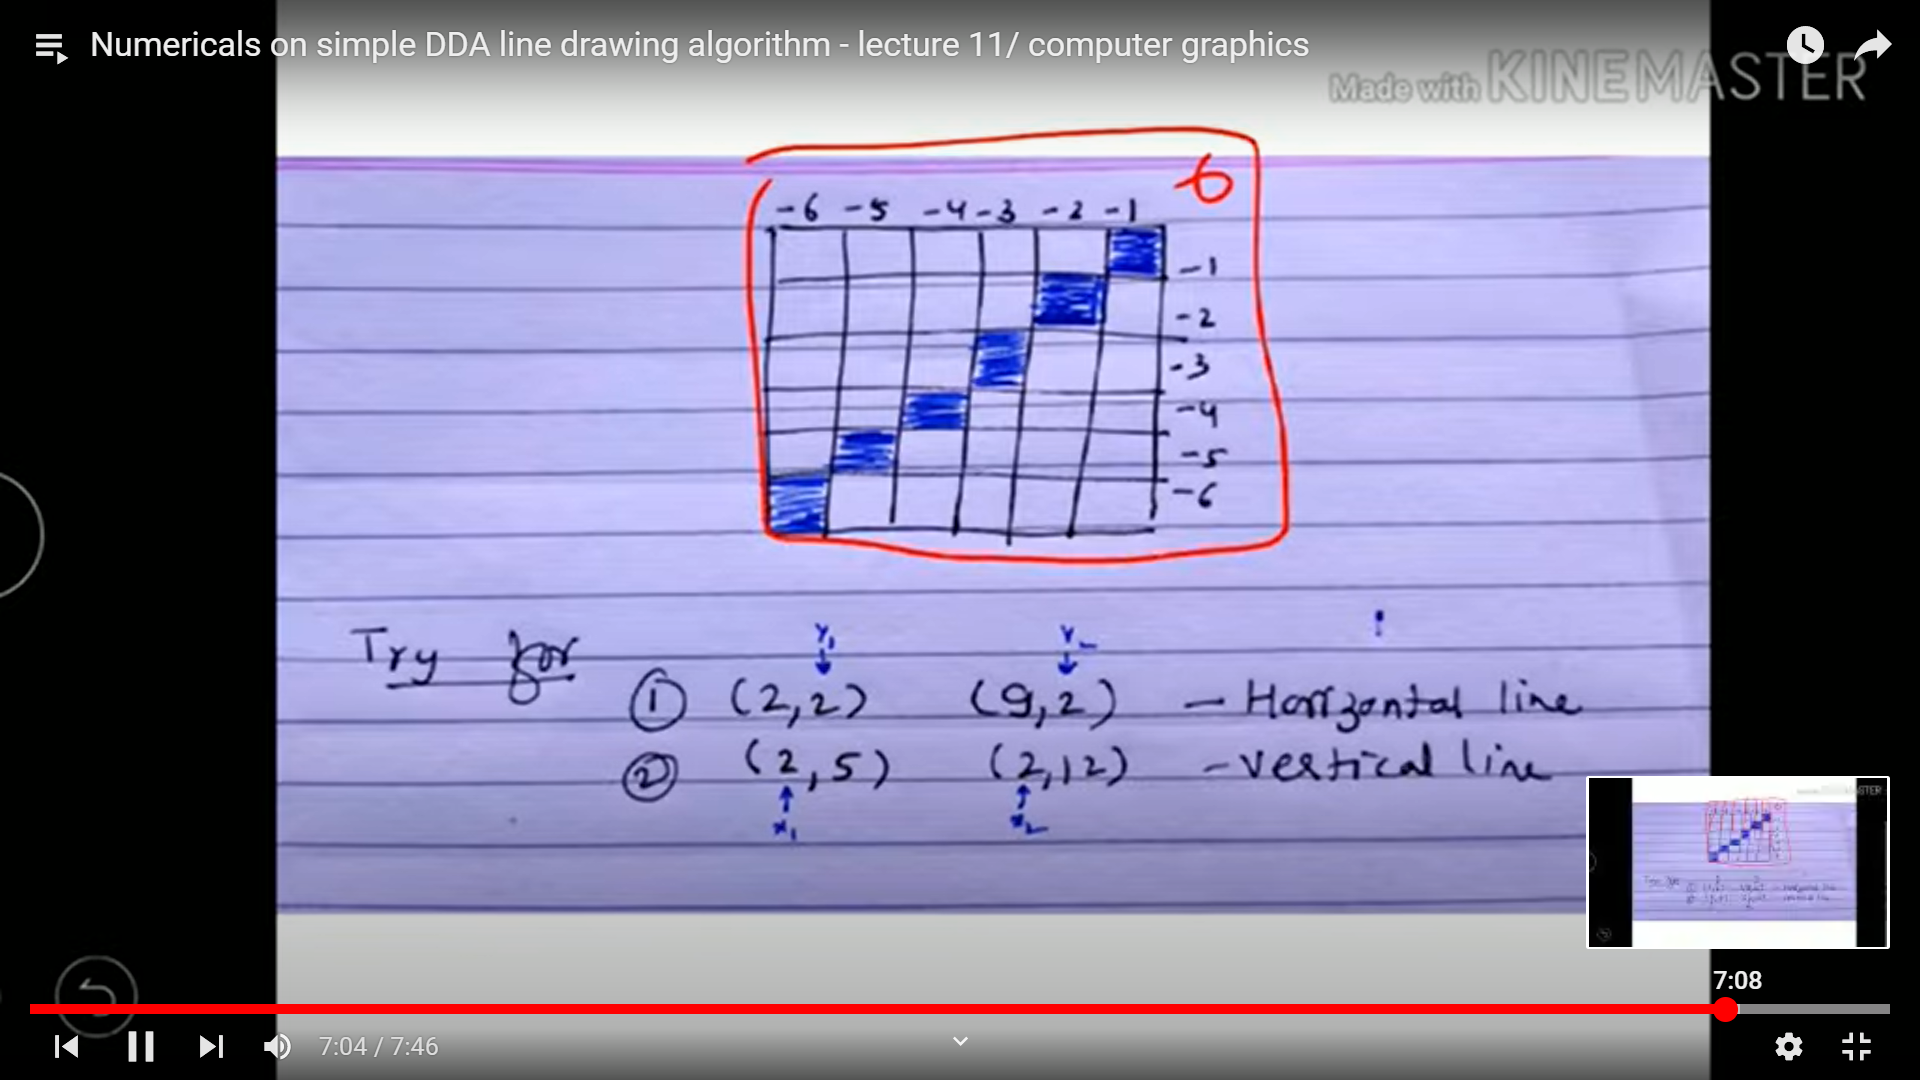 Numericals on simple DDA line drawing algorithm - lecture 11/ computer graphics
Made with KINEMASTER
-6
-6 -5 -4 -3 -2 -1
-1
-2
-3
-4
-5
-6
Try for
y1 y2
① (2,2) (9,2) - Horizontal line
② (2,5) (2,12) - vertical line
x1 x2
7:08
7:04 / 7:46